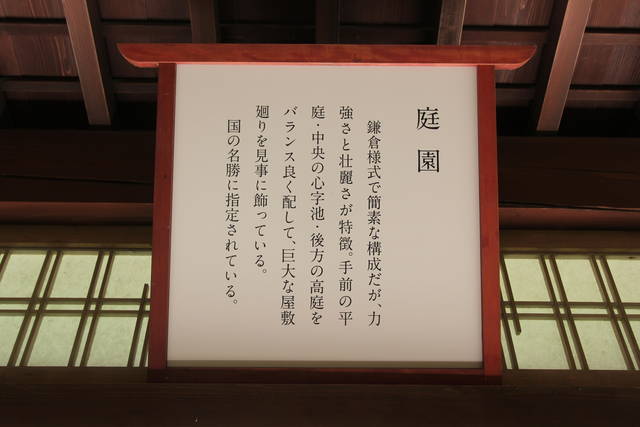 庭園
鎌倉様式で簡素な構成だが、力
強さと壮麗さが特徴。手前の平
庭・中央の心字池・後方の高庭を
バランス良く配して、巨大な屋敷
廻りを見事に飾っている。
国の名勝に指定されている。